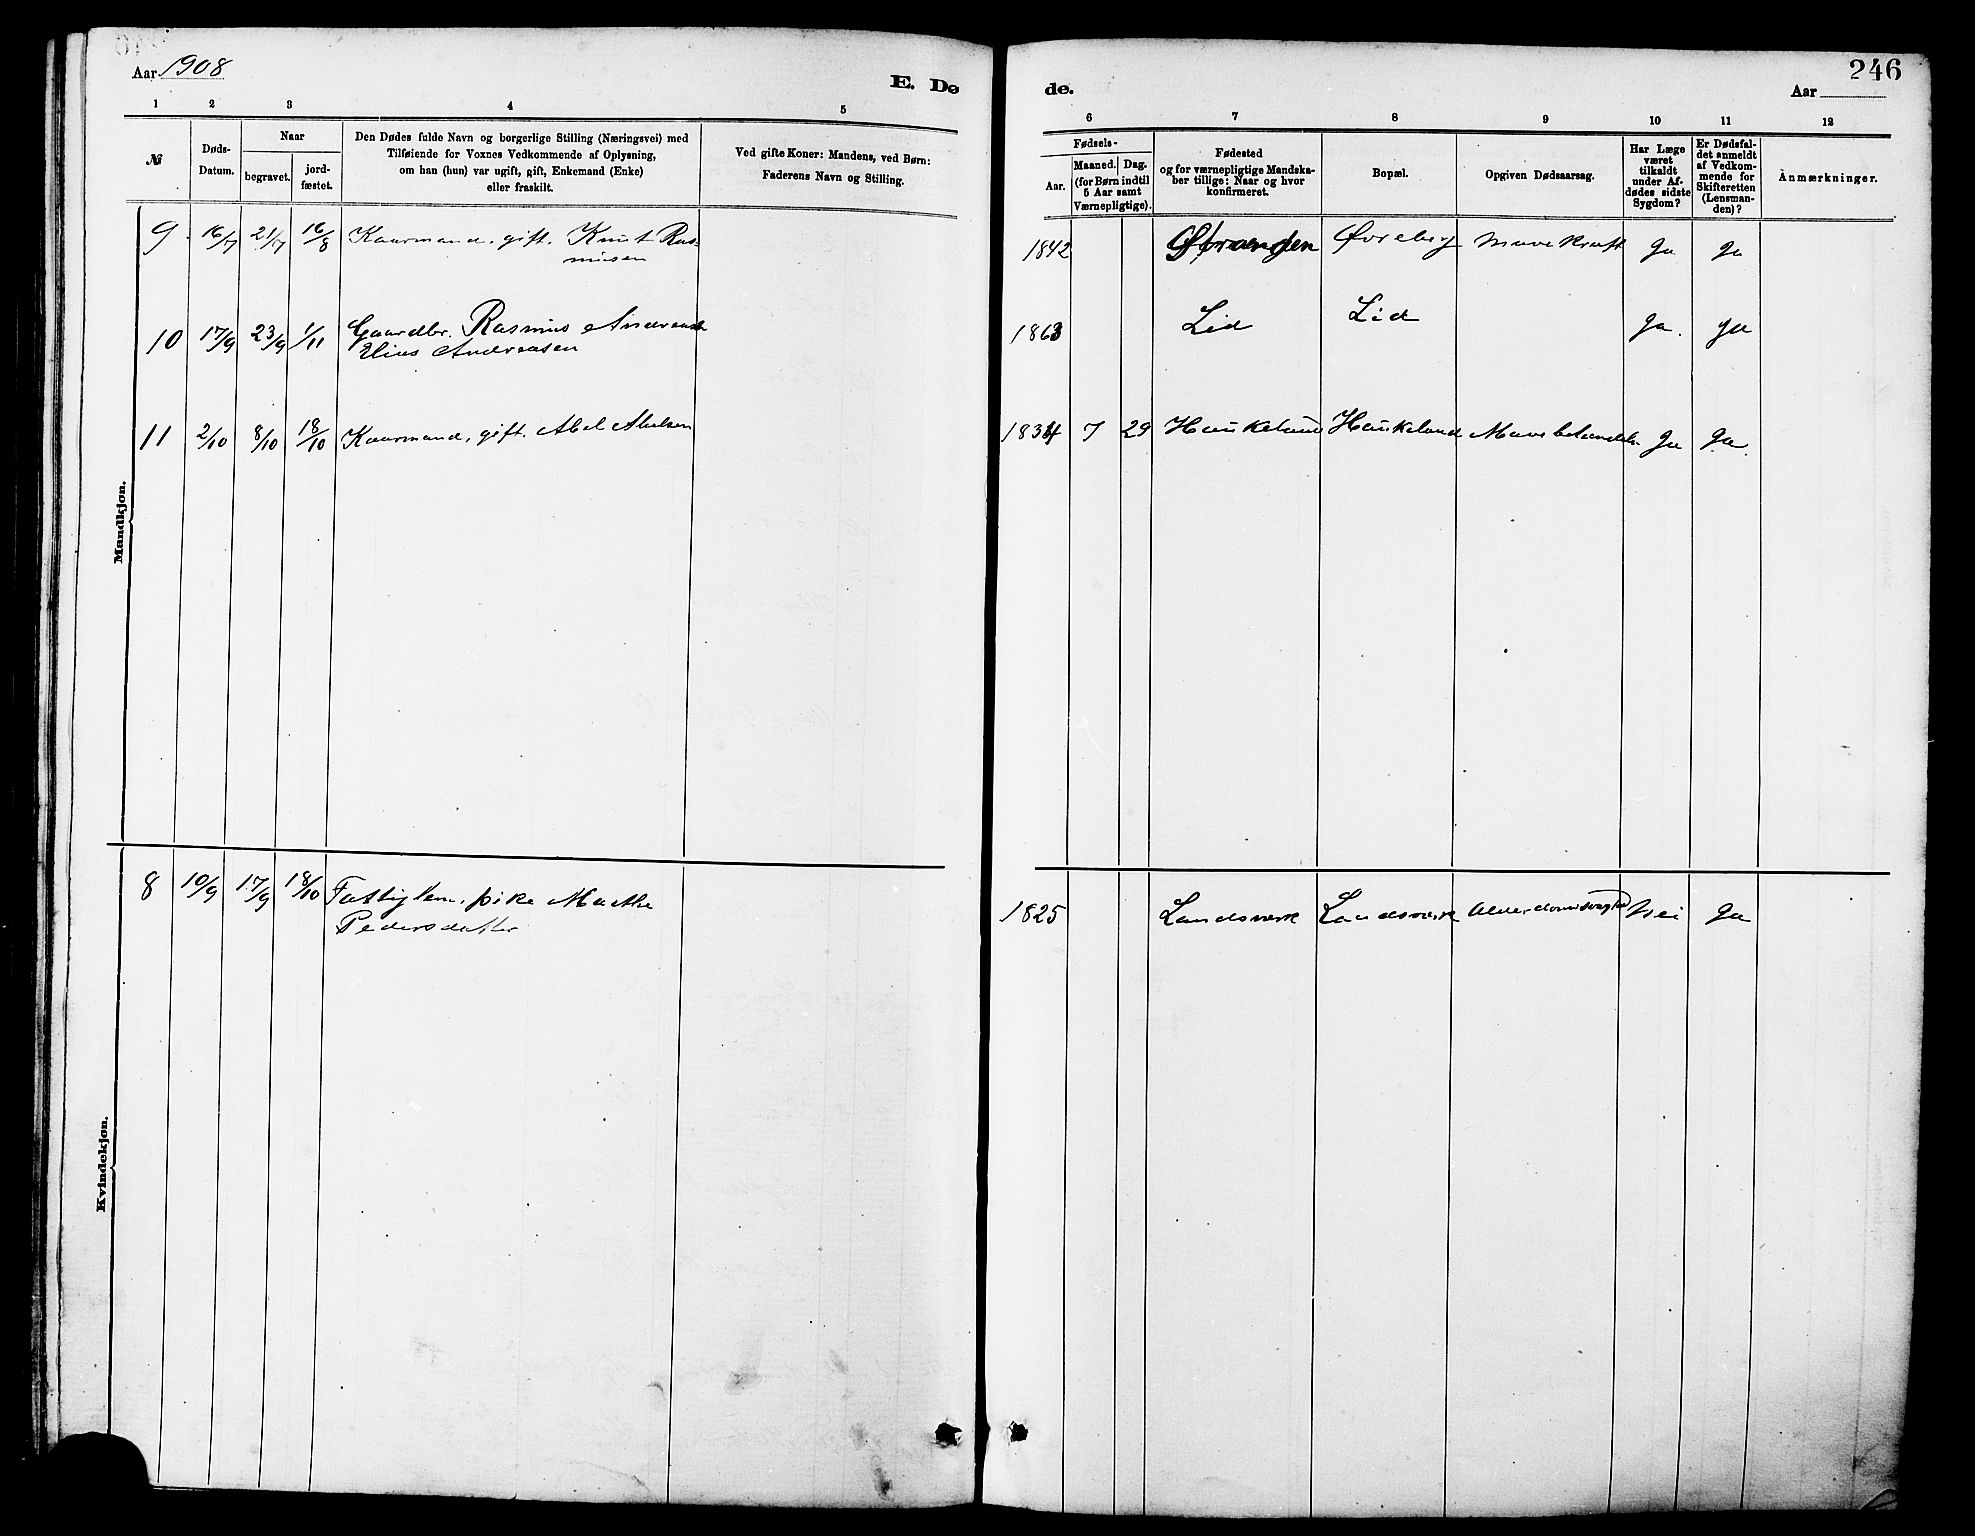 Aar 1908
E. Dø
de.
246
Aar
1 2 3 4 5
6 7 8 9 10 11 12
№
Døds-
Datum.
Naar
begravet.
jord-
fæstet.
Den Dødes fulde Navn og borgerlige Stilling (Næringsvei) med
Tilføiende for Voxnes Vedkommende af Oplysning,
om han (hun) var ugift, gift, Enkemand (Enke)
eller fraskilt.
Ved gifte Koner: Mandens, ved Børn:
Faderens Navn og Stilling.
Fødsels-
Aar.
Maaned. Dag.
(for Børn indtil
5 Aar samt
Værnepligtige).
Fødested
og for værnepligtige Mandska-
ber tillige: Naar og hvor
konfirmeret.
Bopæl.
Opgiven Dødsaarsag.
Har Læge
været
tilkaldt
under Af-
dødes sidste
Sygdom?
Er Dødsfal-
det anmeldt
af Vedkom-
mende for
Skifteretten
(Lensman-
den)?
Anmærkninger.
Mandkjøn.
9 16/7 21/7 16/8 Kaarmand, gift. Knut Ras-
musen
1842 Øvreberg Mavekræft Ja Ja
10 17/9 23/9 1/11 Gaardbr. Rasmus
Elias Andreasen
1863 Lid Lid Ja. Ja
11 2/10 8/10 18/10 Kaarmand, gift. Abel Abelsen
1834 7 29 Haukeland Haukeland Ja Ja.
Kvindekjøn.
8 10/9 17/9 18/10 Fattiglem, pike Marthe
Pedersdatter
1825 Landsverk Landsverk Alderdomssvaghed Nei Ja